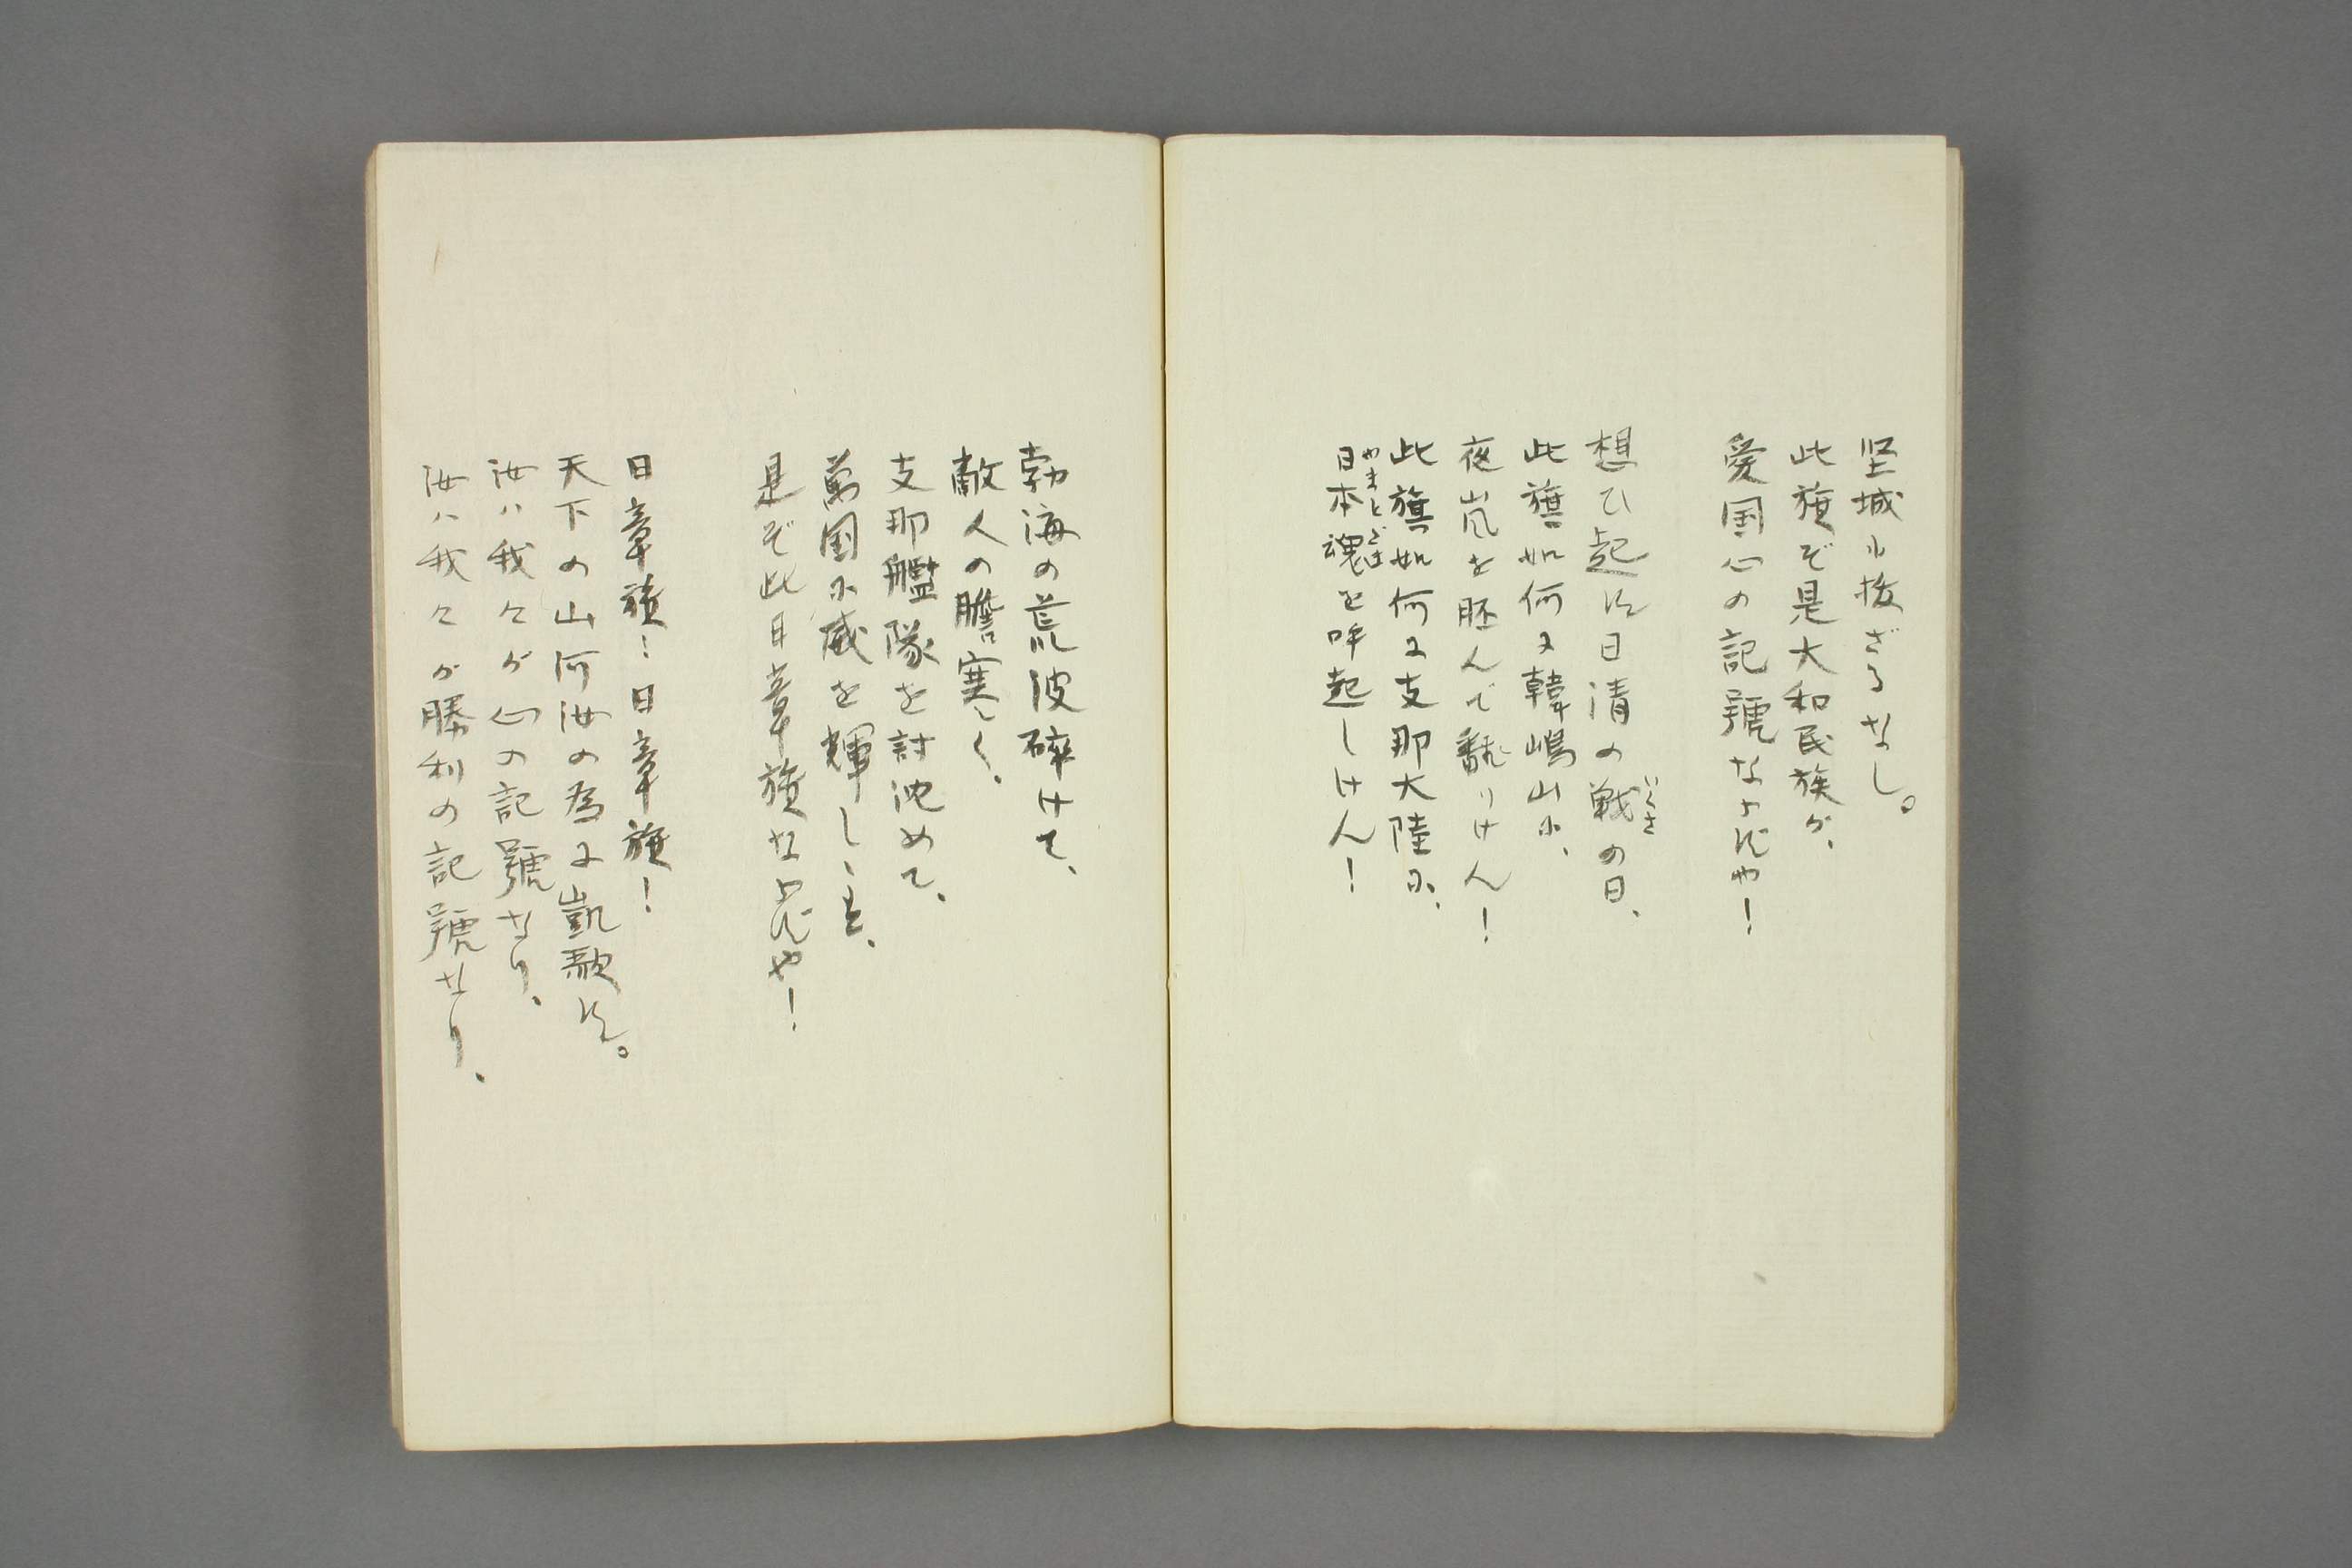 堅城も抜ざるなし。
此旗ぞ是大和民族が、
愛国心の記號なよずや!
想ひ起す日清の戦の日、
いくさ
此旗如何に韓嶋山に、
夜嵐を胚んで飜りけん!
此旗如何に支那大陸に、
日本魂を呼起しけん!
やまとだま
勃海の荒波碎けて、
敵人の膽寒く、
支那艦隊を討沈めて、
萬国に威を輝しゝも、
是ぞ此日章旗なよずや!
日章旗!日章旗!
天下の山河汝の為に凱歌す。
汝ハ我々が心の記號なり、
汝ハ我々が勝利の記號なり、